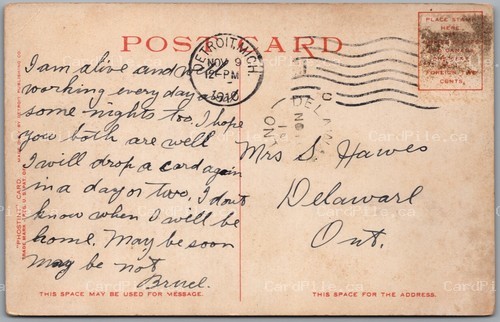 POST CARD
DETROIT, MICH.
NOV 9
12-PM
PLACE STAMP
HERE
FOREIGN TWO
CENTS.
DELAWA
ONT
I am alive and
working every day and
some nights too. I hope
you both are well
I will drop a card again
in a day or two. I dont
know when I will be
home. May be soon
may be not
Bruce.
Mrs S. Hawes
Delaware
Ont.
"PHOSTINT" CARD
THIS SPACE MAY BE USED FOR MESSAGE.
THIS SPACE FOR THE ADDRESS.
CardPile.ca